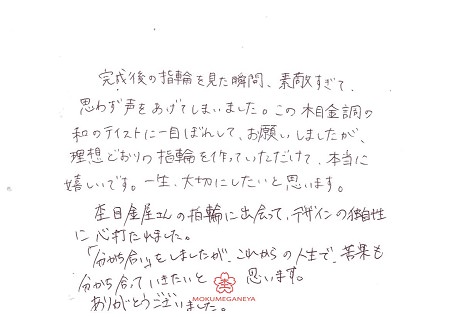 完成後の指輪を見た瞬間、素敵すぎて、
思わず声をあげてしまいました。この木目金調の
和のテイストに一目ぼれして、お願いしましたが、
理想どおりの指輪を作っていただけて、本当に
嬉しいです。一生、大切にしたいと思います。
杢目金屋さんの指輪に出会って、デザインの独自性
に心打たれました。
「分かち合い」をしましたが、これからの人生で、苦楽も
分かち合っていきたいと思います。
MOKUMEGANEYA
ありがとうございました。